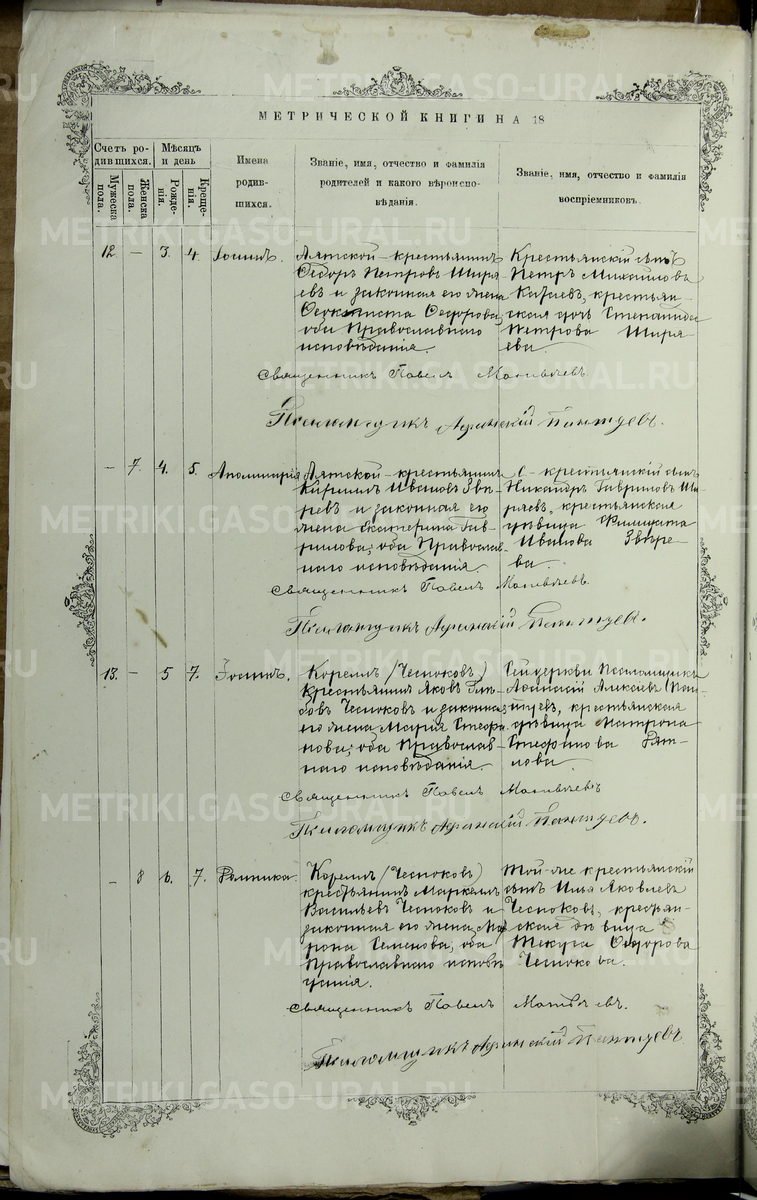 МЕТРИЧЕСКОЙ КНИГИ НА 18
Счетъ ро-
дившихся.
Мѣсяцъ
и день
Мужеска
пола.
Женска
пола.
Рожде-
нія.
Креще-
нія.
Имена
родив-
шихся.
Званіе, имя, отчество и фамилія
родителей и какого вѣроиспо-
вѣданія.
Званіе, имя, отчество и фамилія
воспріемниковъ.
12. — 3. 4. Іосифъ.
Лятской крестьянинъ
Ѳедоръ Петровъ Ширя
евъ и законная его жена
Ѳеоктиста Ѳедорова,
оба Православнаго
исповѣданія.
Крестьянскій сынъ
Петръ Михайловъ
крестьян-
ская дочь Степанида
Петрова Ширя-
ева.
Священникъ Павелъ Матвѣевъ
Псаломщикъ Афанасій Пантуевъ.
— 7. 4. 5. Аполинарія
Лятской крестьянинъ
Кириллъ Ивановъ Звѣ
ревъ и законная его
жена Екатерина Гав-
рилова, оба Православ-
наго исповѣданія.
крестьянскій сынъ
Никандръ Гавриловъ Ши
ряевъ, крестьянская
дѣвица
Иванова Звѣре-
ва.
Священникъ Павелъ Матвѣевъ
Псаломщикъ Афанасій Пантуевъ.
13. — 5 7. Іосифъ.
(Чесноковъ)
крестьянинъ Яковъ
Чесноковъ и законная
его жена Марія Стефа
нова, оба Православ-
наго исповѣданія.
Сей церкви Псаломщикъ
Афанасій Алексѣевъ Пан-
туевъ, крестьянская
дѣвица Матрона
Стефанова
Священникъ Павелъ Матвѣевъ
Псаломщикъ Афанасій Пантуевъ.
— 8 6. 7.
(Чесноковъ)
крестьянинъ Маркеллъ
Васильевъ Чесноковъ и
законная его жена Мат
рона Семенова, оба
Православнаго исповѣ
данія.
Той-же крестьянскій
сынъ Илья Яковлевъ
Чесноковъ, крестьян-
ская дѣвица
Ѳекура Ѳедорова
Чеснокова.
Священникъ Павелъ Матвѣевъ.
Псаломщикъ Афанасій Пантуевъ
METRIKI.GASO-URAL.RU